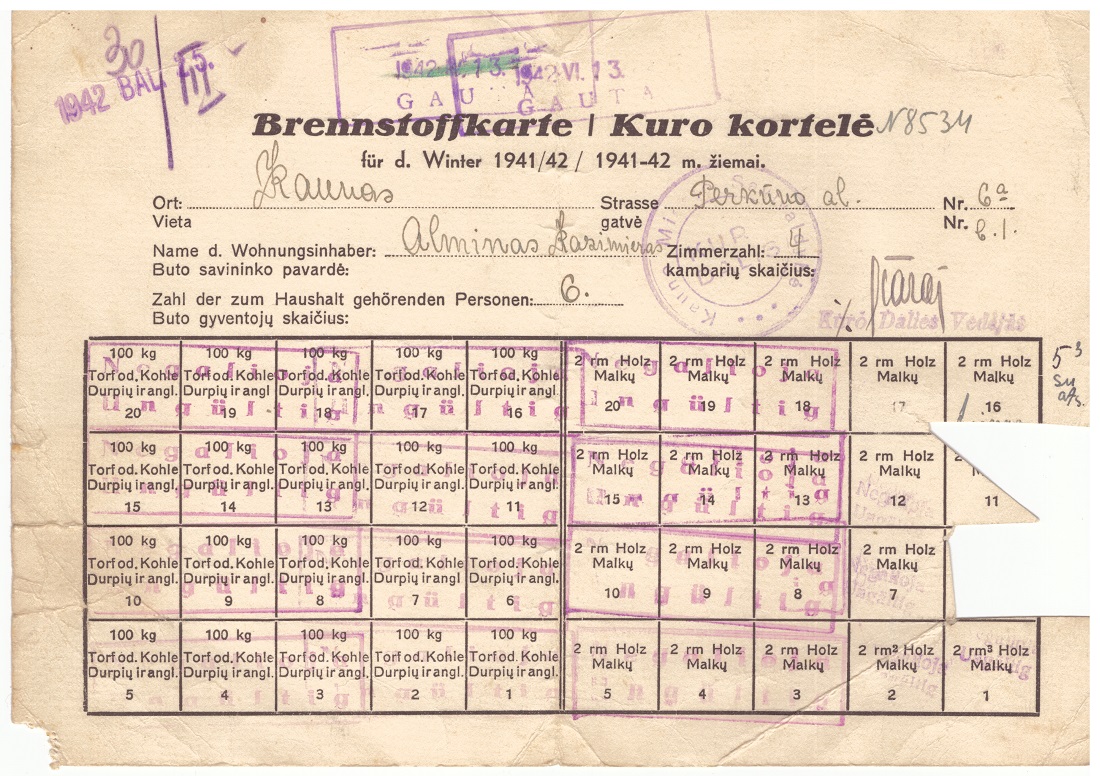 30
1942 BAL. 15.
III
1942 VI. 13.
GAUTA
GAUTA
Brennstoffkarte / Kuro kortelė N8534
für d. Winter 1941/42 / 1941-42 m. žiemai.
Ort: Kaunas Strasse Perkūno al. Nr. 6a
Vieta gatvė Nr. b.1.
Name d. Wohnungsinhaber: Alminas Kazimieras Zimmerzahl: 4
Buto savininko pavardė: kambarių skaičius:
Zahl der zum Haushalt gehörenden Personen: 6.
Buto gyventojų skaičius:
Kuro Dalies Vedėjas
100 kg 100 kg 100 kg 100 kg 100 kg 2 rm Holz 2 rm Holz 2 rm Holz 2 rm Holz 2 rm Holz
Torf od. Kohle Torf od. Kohle Torf od. Kohle Torf od. Kohle Torf od. Kohle Malkų Malkų Malkų Malkų Malkų
Durpių ir angl. Durpių ir angl. Durpių ir angl. Durpių ir angl. Durpių ir angl.
20 19 18 17 16 20 19 18 17 16
Negalioja
Ungültig
100 kg 100 kg 100 kg 100 kg 100 kg 2 rm Holz 2 rm Holz 2 rm Holz 2 rm Holz 2
Torf od. Kohle Torf od. Kohle Torf od. Kohle Torf od. Kohle Torf od. Kohle Malkų Malkų Malkų Malkų
Durpių ir angl. Durpių ir angl. Durpių ir angl. Durpių ir angl. Durpių ir angl.
15 14 13 12 11 15 14 13 12 11
Negalioja
Ungültig
100 kg 100 kg 100 kg 100 kg 100 kg 2 rm Holz 2 rm Holz 2 rm Holz 2 rm Holz
Torf od. Kohle Torf od. Kohle Torf od. Kohle Torf od. Kohle Torf od. Kohle Malkų Malkų Malkų Malkų
Durpių ir angl. Durpių ir angl. Durpių ir angl. Durpių ir angl. Durpių ir angl.
10 9 8 7 6 10 9 8 7
Negalioja
Ungültig
100 kg 100 kg 100 kg 100 kg 100 kg 2 rm Holz 2 rm Holz 2 rm Holz 2 rm³ Holz 2 rm³ Holz
Torf od. Kohle Torf od. Kohle Torf od. Kohle Torf od. Kohle Torf od. Kohle Malkų Malkų Malkų Malkų Malkų
Durpių ir angl. Durpių ir angl. Durpių ir angl. Durpių ir angl. Durpių ir angl.
5 4 3 2 1 5 4 3 2 1
Negalioja
Ungültig